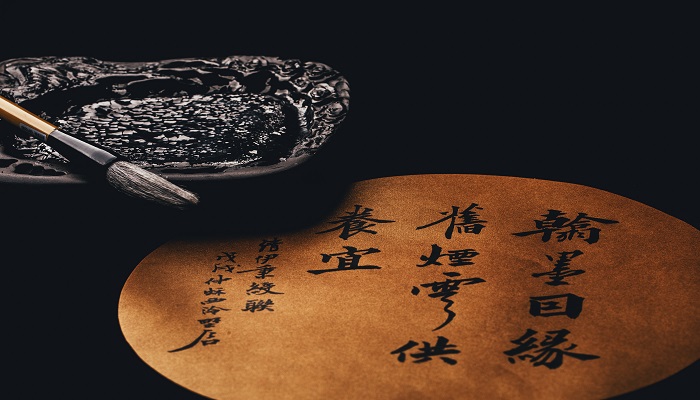 翰墨囙緣
舊煙雲供
養宜
清伊秉綬聯
戊戌仲秋西泠居